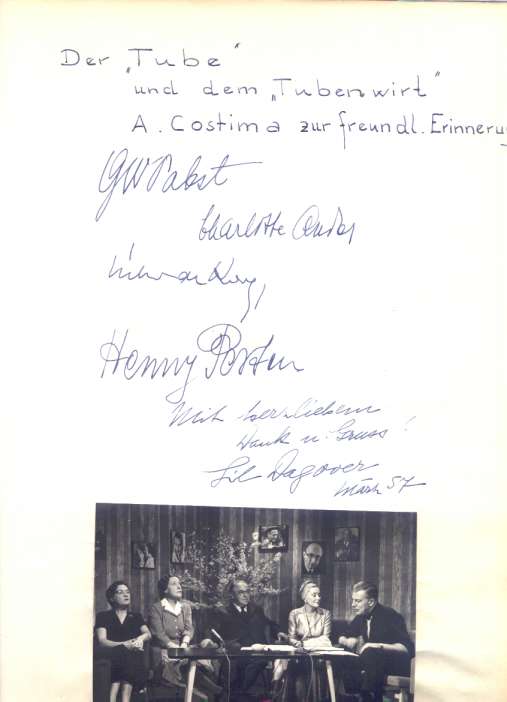 Der „Tube"
und dem „Tubenwirt"
A. Costima zur freundl. Erinneru
GW Pabst
Charlotte Ander
Henny Porten
Mit herzlichem
Dank u. Gruss!
Lil Dagover
März 57